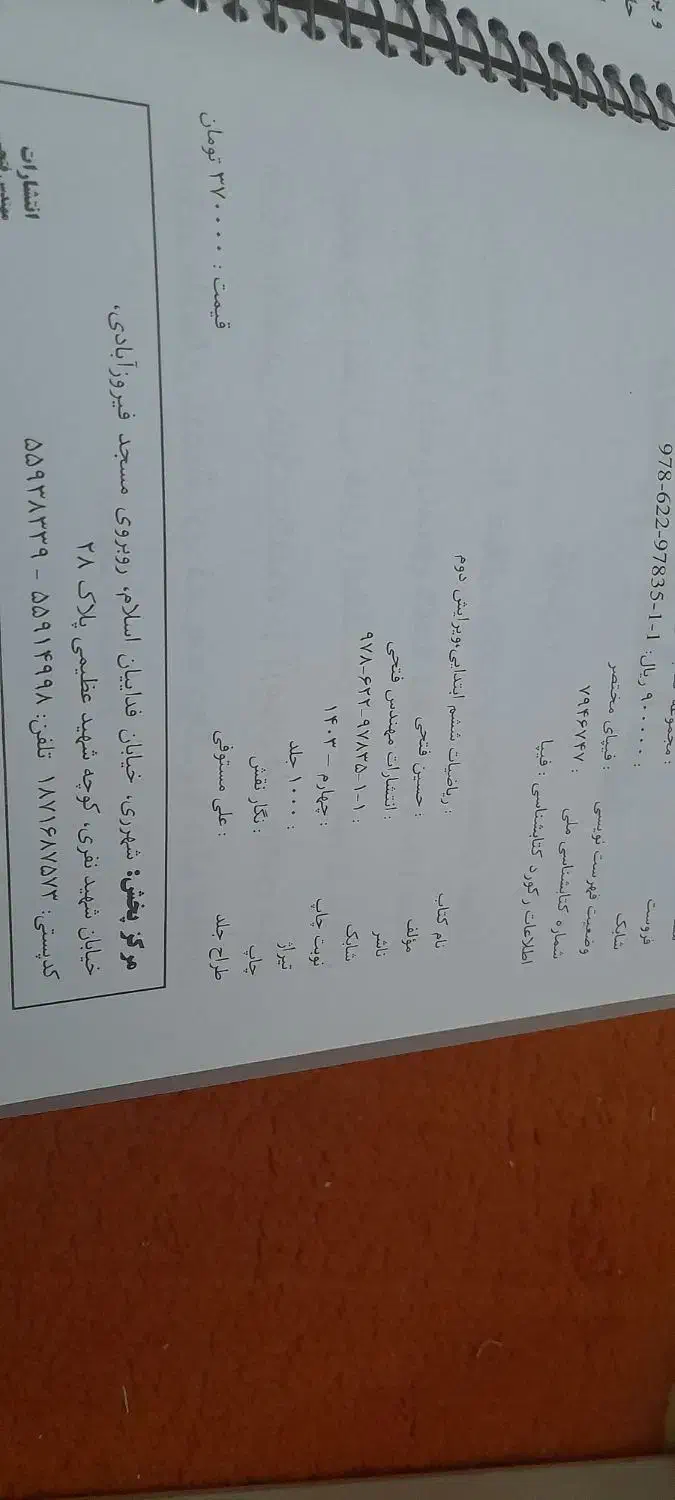 فروست : مجموعه
شابک : ۹۰۰۰۰۰ ریال: 978-622-97835-1-1
وضعیت فهرست نویسی : فیپای مختصر
شماره کتابشناسی ملی : ۷۹۴۶۷۴۷
اطلاعات رکورد کتابشناسی : فیپا
نام کتاب : ریاضیات ششم ابتدایی،ویرایش دوم
مؤلف : حسین فتحی
ناشر : انتشارات مهندس فتحی
شابک : ۹۷۸-۶۲۲-۹۷۸۳۵-۱-۱
نوبت چاپ : چهارم – ۱۴۰۳
تیراژ : ۱۰۰۰ جلد
چاپ : نگار نقش
طراح جلد : علی مستوفی
قیمت : ۳۷۰۰۰۰ تومان
مرکز پخش: شهرری، خیابان فداییان اسلام، روبروی مسجد فیروزآبادی،
خیابان شهید نفری، کوچه شهید عظیمی پلاک ۲۸
کدپستی: ۱۸۷۱۶۸۷۵۷۳ تلفن: ۵۵۹۱۴۹۹۸ – ۵۵۹۳۸۳۳۹
انتشارات